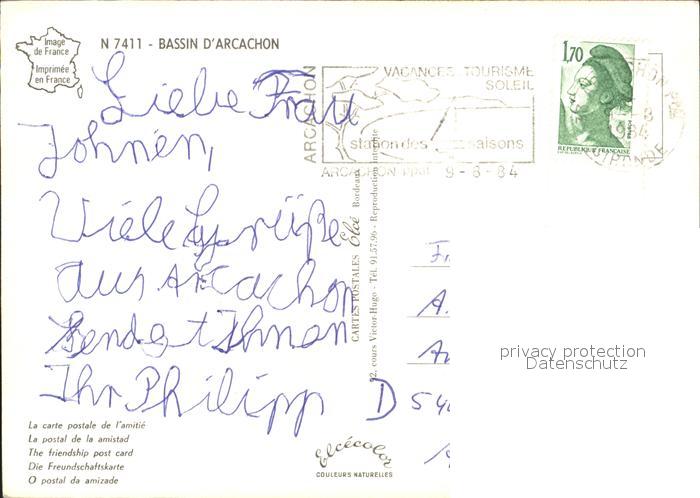 Image
de France
Imprimée
en France
N 7411 - BASSIN D'ARCACHON
Liebe Frau
Johnen,
Viele Grüße
aus Arcachon
sendet Ihnen
Ihr Philipp
La carte postale de l'amitié
La postal de la amistad
The friendship post card
Die Freundschaftskarte
O postal da amizade
ARCACHON
VACANCES TOURISME
SOLEIL
station des 4 saisons
ARCACHON ppal 9-8-84
1,70
REPUBLIQUE FRANCAISE
1984
GIRONDE
CARTES POSTALES Elcé Bordeaux
cours Victor-Hugo - Tél. 91.57.96 - Reproduction interdite
Elcécolor
COULEURS NATURELLES
D 54
privacy protection
Datenschutz